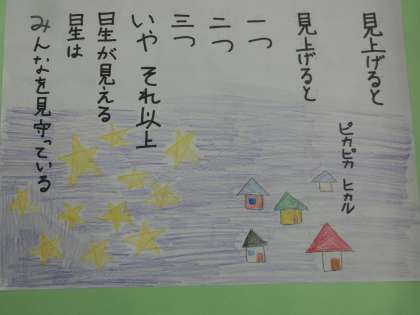 見上げると
ピカピカ ヒカル
見上げると
一つ
二つ
三つ
いや それ以上
星が見える
星は
みんなを見守っている